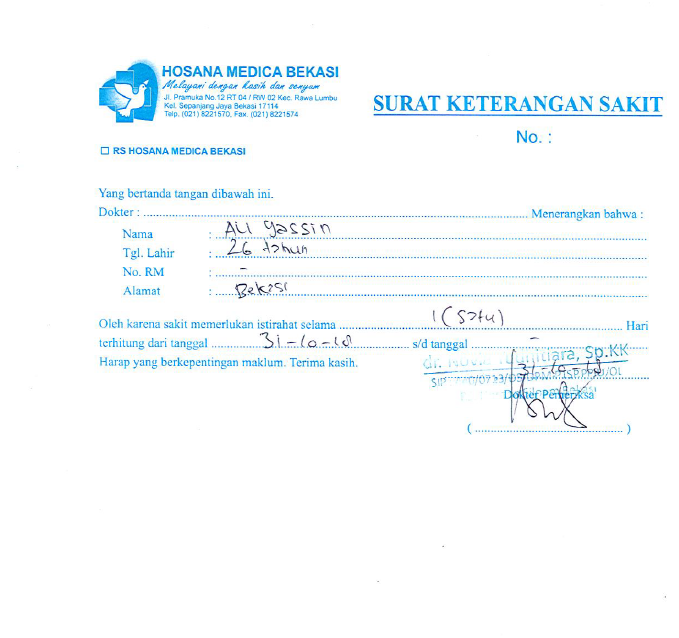 HOSANA MEDICA BEKASI
Melayani dengan kasih dan senyum
Jl. Pramuka No.12 RT 04 / RW 02 Kec. Rawa Lumbu
Kel. Sepanjang Jaya Bekasi 17114
Telp. (021) 8221570, Fax. (021) 8221574
SURAT KETERANGAN SAKIT
No. :
RS HOSANA MEDICA BEKASI
Yang bertanda tangan dibawah ini.
Dokter : Menerangkan bahwa :
Nama : Ali Yassin
Tgl. Lahir : 26 tahun
No. RM : -
Alamat : Bekasi
Oleh karena sakit memerlukan istirahat selama 1 (Satu) Hari
terhitung dari tanggal 31-10-18 s/d tanggal -
Harap yang berkepentingan maklum. Terima kasih.
dr. Sp.KK
31-10-18
Dokter Pemeriksa
( )